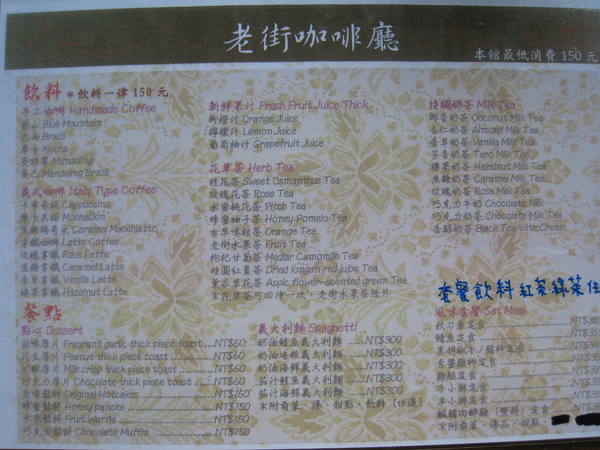 老街咖啡廳
本館最低消費 150 元
飲料 *飲料一律 150 元
手工咖啡 Handmade Coffee
藍山 Blue Mountain
巴西 Brazil
摩卡 Mocha
曼特寧 Mandeling
曼巴 Mandeling Brazil
義式咖啡 Italy Type Coffee
卡布奇諾 Cappuccino
摩卡其諾 Mochaccion
焦糖瑪奇朵 Caramel Macchiatto
拿鐵咖啡 Latte Coffee
玫瑰拿鐵 Rose Latte
焦糖拿鐵 Caramel Latte
香草拿鐵 Vanilla Latte
榛果拿鐵 Hazelnut Latte
餐點
點心 Dessert
蒜味厚片 Fragrant garlic thick piece toast ....NT$60
花生厚片 Peanut thick piece toast ....NT$60
奶酥厚片 Milk crisp thick piece toast ....NT$60
巧克力厚片 Chocolate thick piece toast ....NT$60
原味鬆餅 Original Hotcakes ....NT$150
蜂蜜鬆餅 Honey pancke ....NT$150
水果鬆餅 Fruit Waffle ....NT$150
巧克力鬆餅 Chocolate Muffin ....NT$150
新鮮果汁 Fresh Fruit Juice Thick
柳橙汁 Orange Juice
檸檬汁 Lemon Juice
葡萄柚汁 Grapefruit Juice
花草茶 Herb Tea
桂花茶 Sweet Osmanthus Tea
玫瑰花茶 Rose Tea
水蜜桃花茶 Pitch Tea
蜂蜜柚子茶 Honey Pomelo Tea
古早味桔茶 Orange Tea
老街水果茶 Fruit Tea
枸杞甘菊茶 Medlar Camomile Tea
桂圓紅棗茶 Dried longan red jube Tea
薰衣草花茶 Aspic flower-scented green Tea
※花草茶可回沖一次，老街水果茶除外
義大利麵 Spaghetti
奶油鮭魚義大利麵 ....NT$300
奶油培根義大利麵 ....NT$300
奶油海鮮義大利麵 ....NT$300
茄汁鮭魚義大利麵 ....NT$300
茄汁海鮮義大利麵 ....NT$300
※附前菜、湯、甜點、飲料（任選）
特調奶茶 Milk Tea
椰香奶茶 Coconut Milk Tea
杏仁奶茶 Almond Milk Tea
香草奶茶 Vanilla Milk Tea
芋香奶茶 Taro Milk Tea
榛果奶茶 Hazelnut Milk Tea
焦糖奶茶 Caramel Milk Tea
玫瑰奶茶 Rose Milk Tea
巧克力牛奶 Chocolate Milk
巧克力奶茶 Chocolate Milk Tea
香醇奶茶 Black Tea With Cream
套餐飲料 紅茶 綠茶 任
風味套餐 Set Meal
秋刀魚定食
鯖魚定食
黑胡椒牛／豬柳定食
香醬雞柳定食
雞腿定食
牛小排定食
羊小排定食
鹹豬肉醉雞（雙拼）定食
※附前菜、湯品、甜點